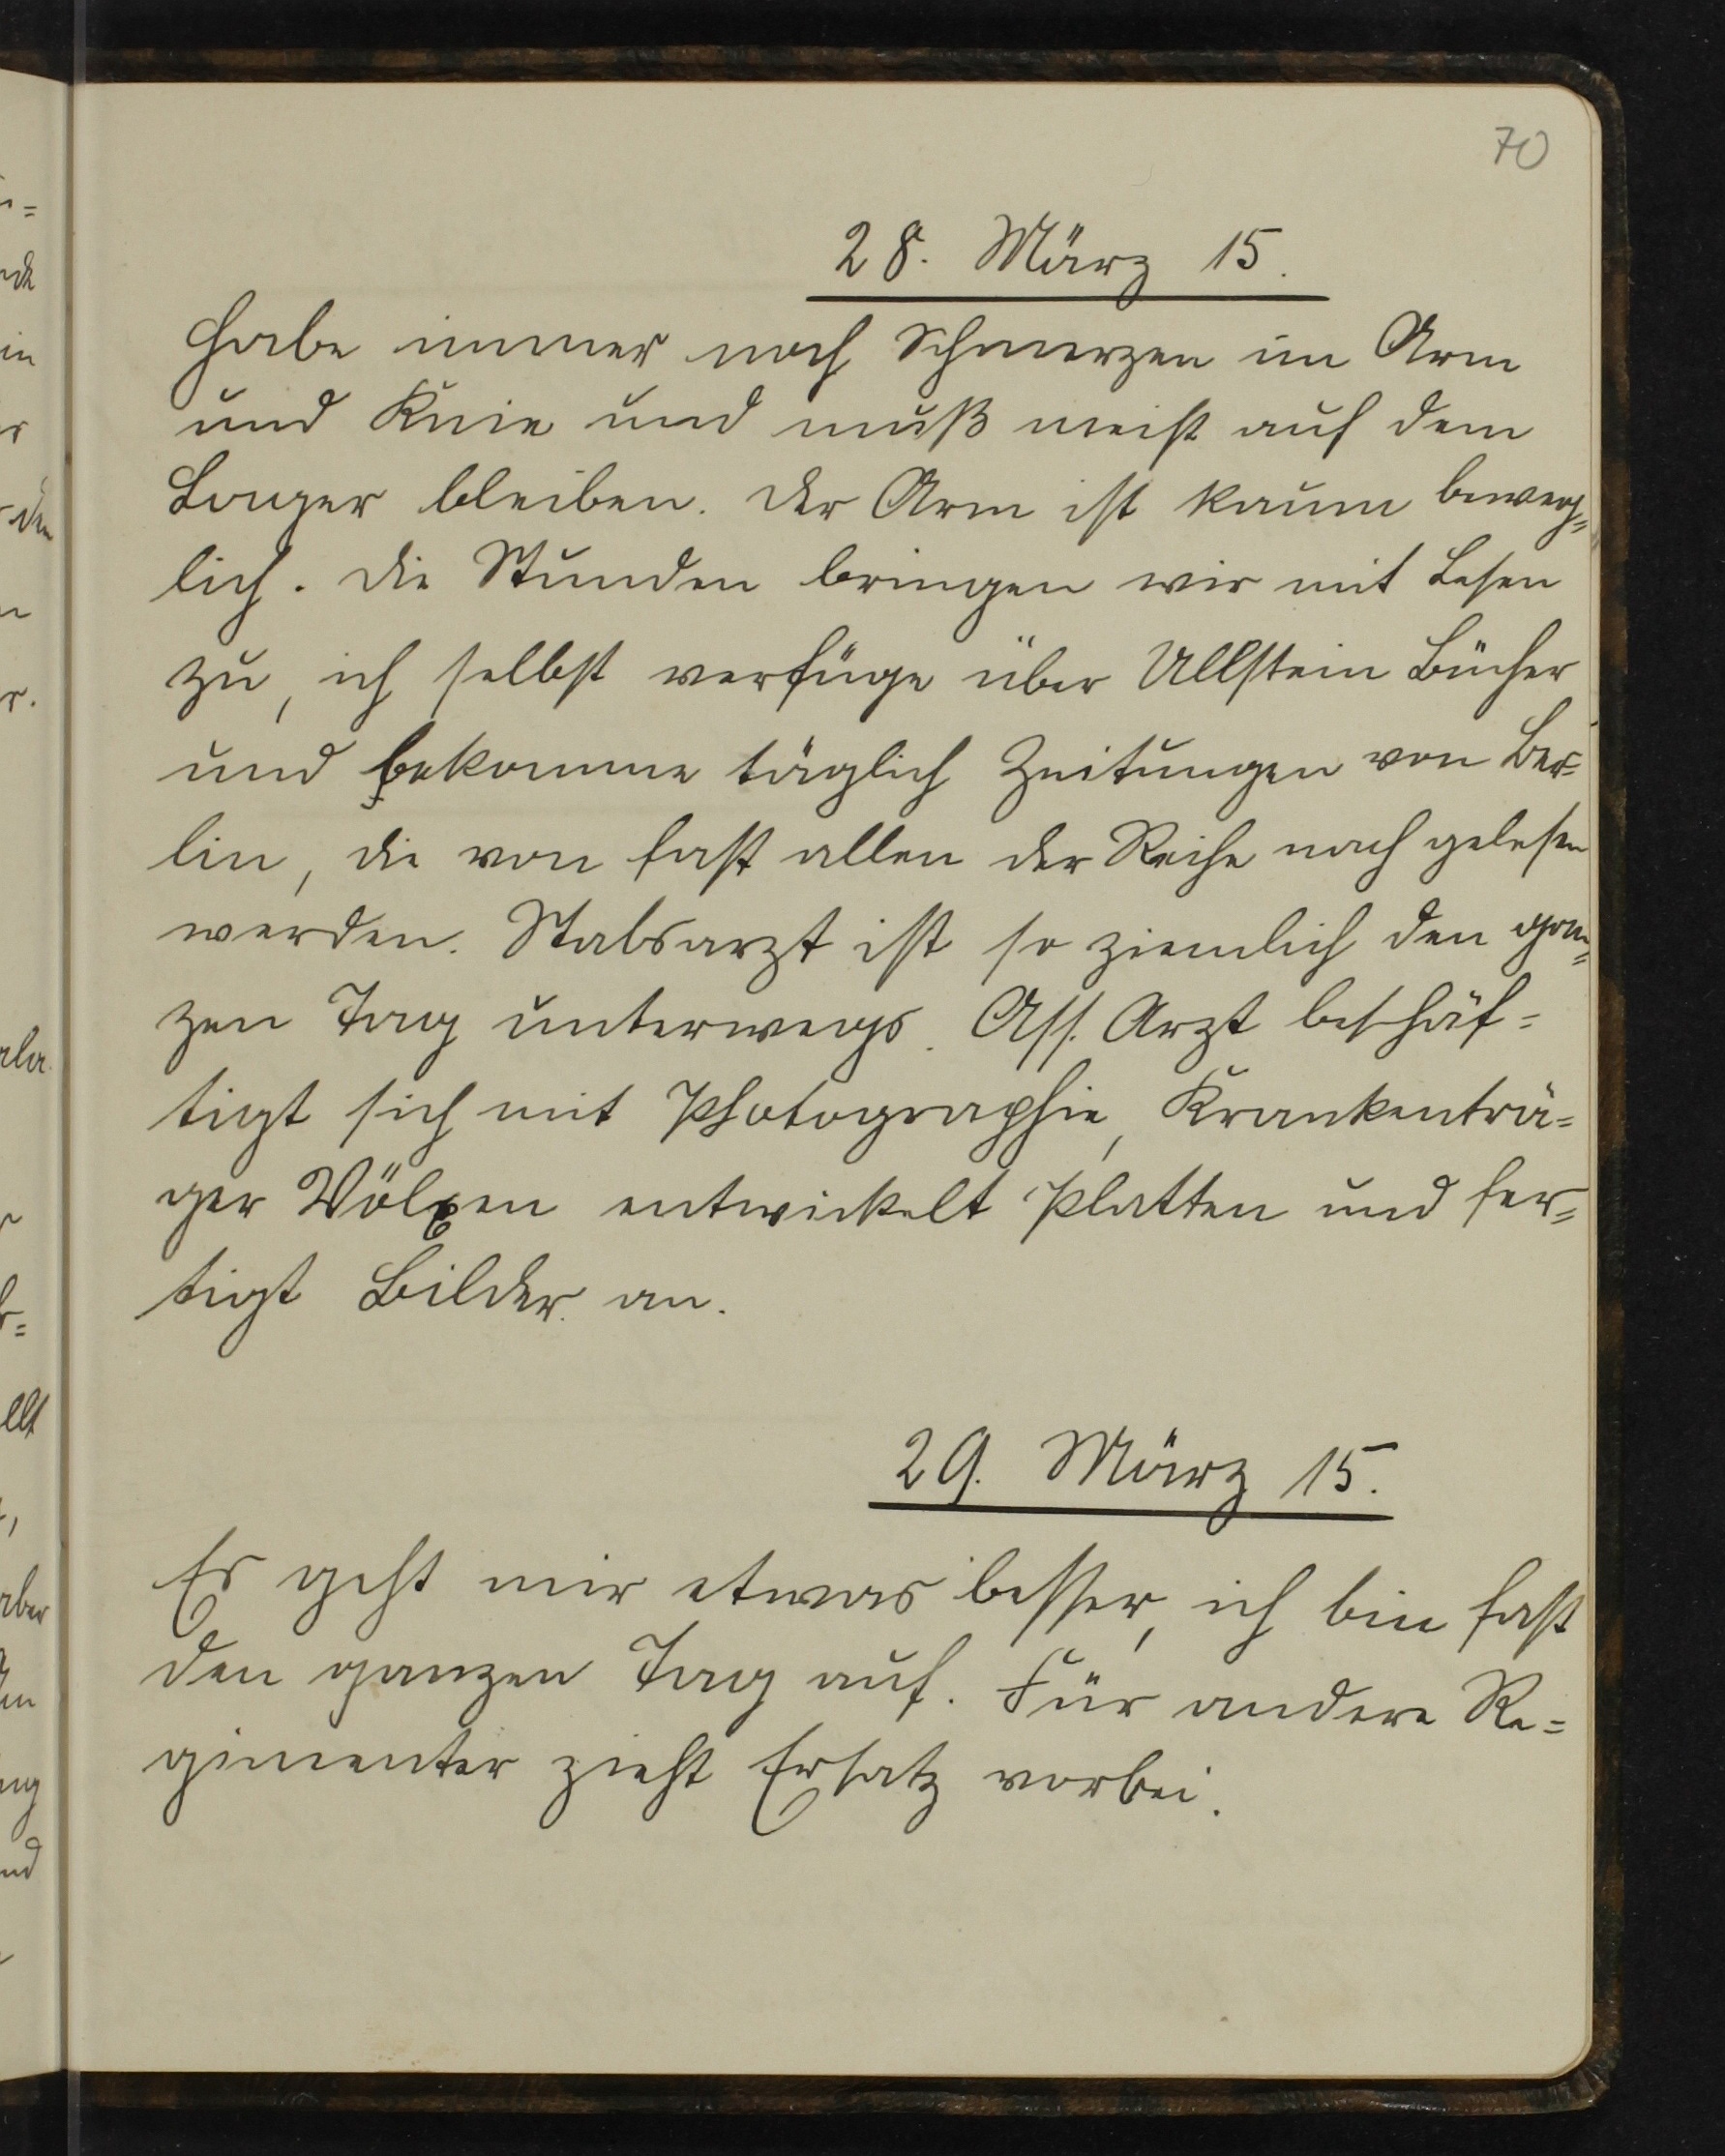 70
28. März 15.
Habe immer noch Schmerzen im Arm
und Knie und muß meist auf dem
Lager bleiben. Der Arm ist kaum beweg=
lich. Die Stunden bringen wir mit Lesen
zu, ich selbst verfüge über Ullstein Bücher
und bekomme täglich Zeitungen von Ber=
lin, die von fast allen der Reihe nach gelesen
werden. Stabsarzt ist so ziemlich den gan=
zen Tag unterwegs. Ass. Arzt beschäf=
tigt sich mit Photographie, Krankenträ=
ger entwickelt Platten und fer=
tigt Bilder an.
29. März 15.
Es geht mir etwas besser, ich bin fast
den ganzen Tag auf. Für andere Re=
gimenter zieht Ersatz vorbei.